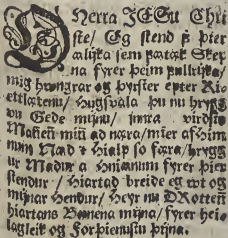 O Herra JESu Chri
ste/ Eg stend þ þier
sem Skep
na fyrer þeim
mig hungrar og þyrster epter Ri
ettlætenu/ Hugsvala þu nu hrygg
vu Gede mijnu/ innra virdstu
Mañeñ miñ ad næra/ mier af Him
num Nad Hialp so færa/ hrygg
ur Madur a Hniaanum fyrer þier
stendur/ Hiartad breide eg wt og
mijnar Hendur/ Heyr nu DRotteñ
hiartans Bænena mijna/ fyrer hei-
lagleik og Forþienustu þijna.